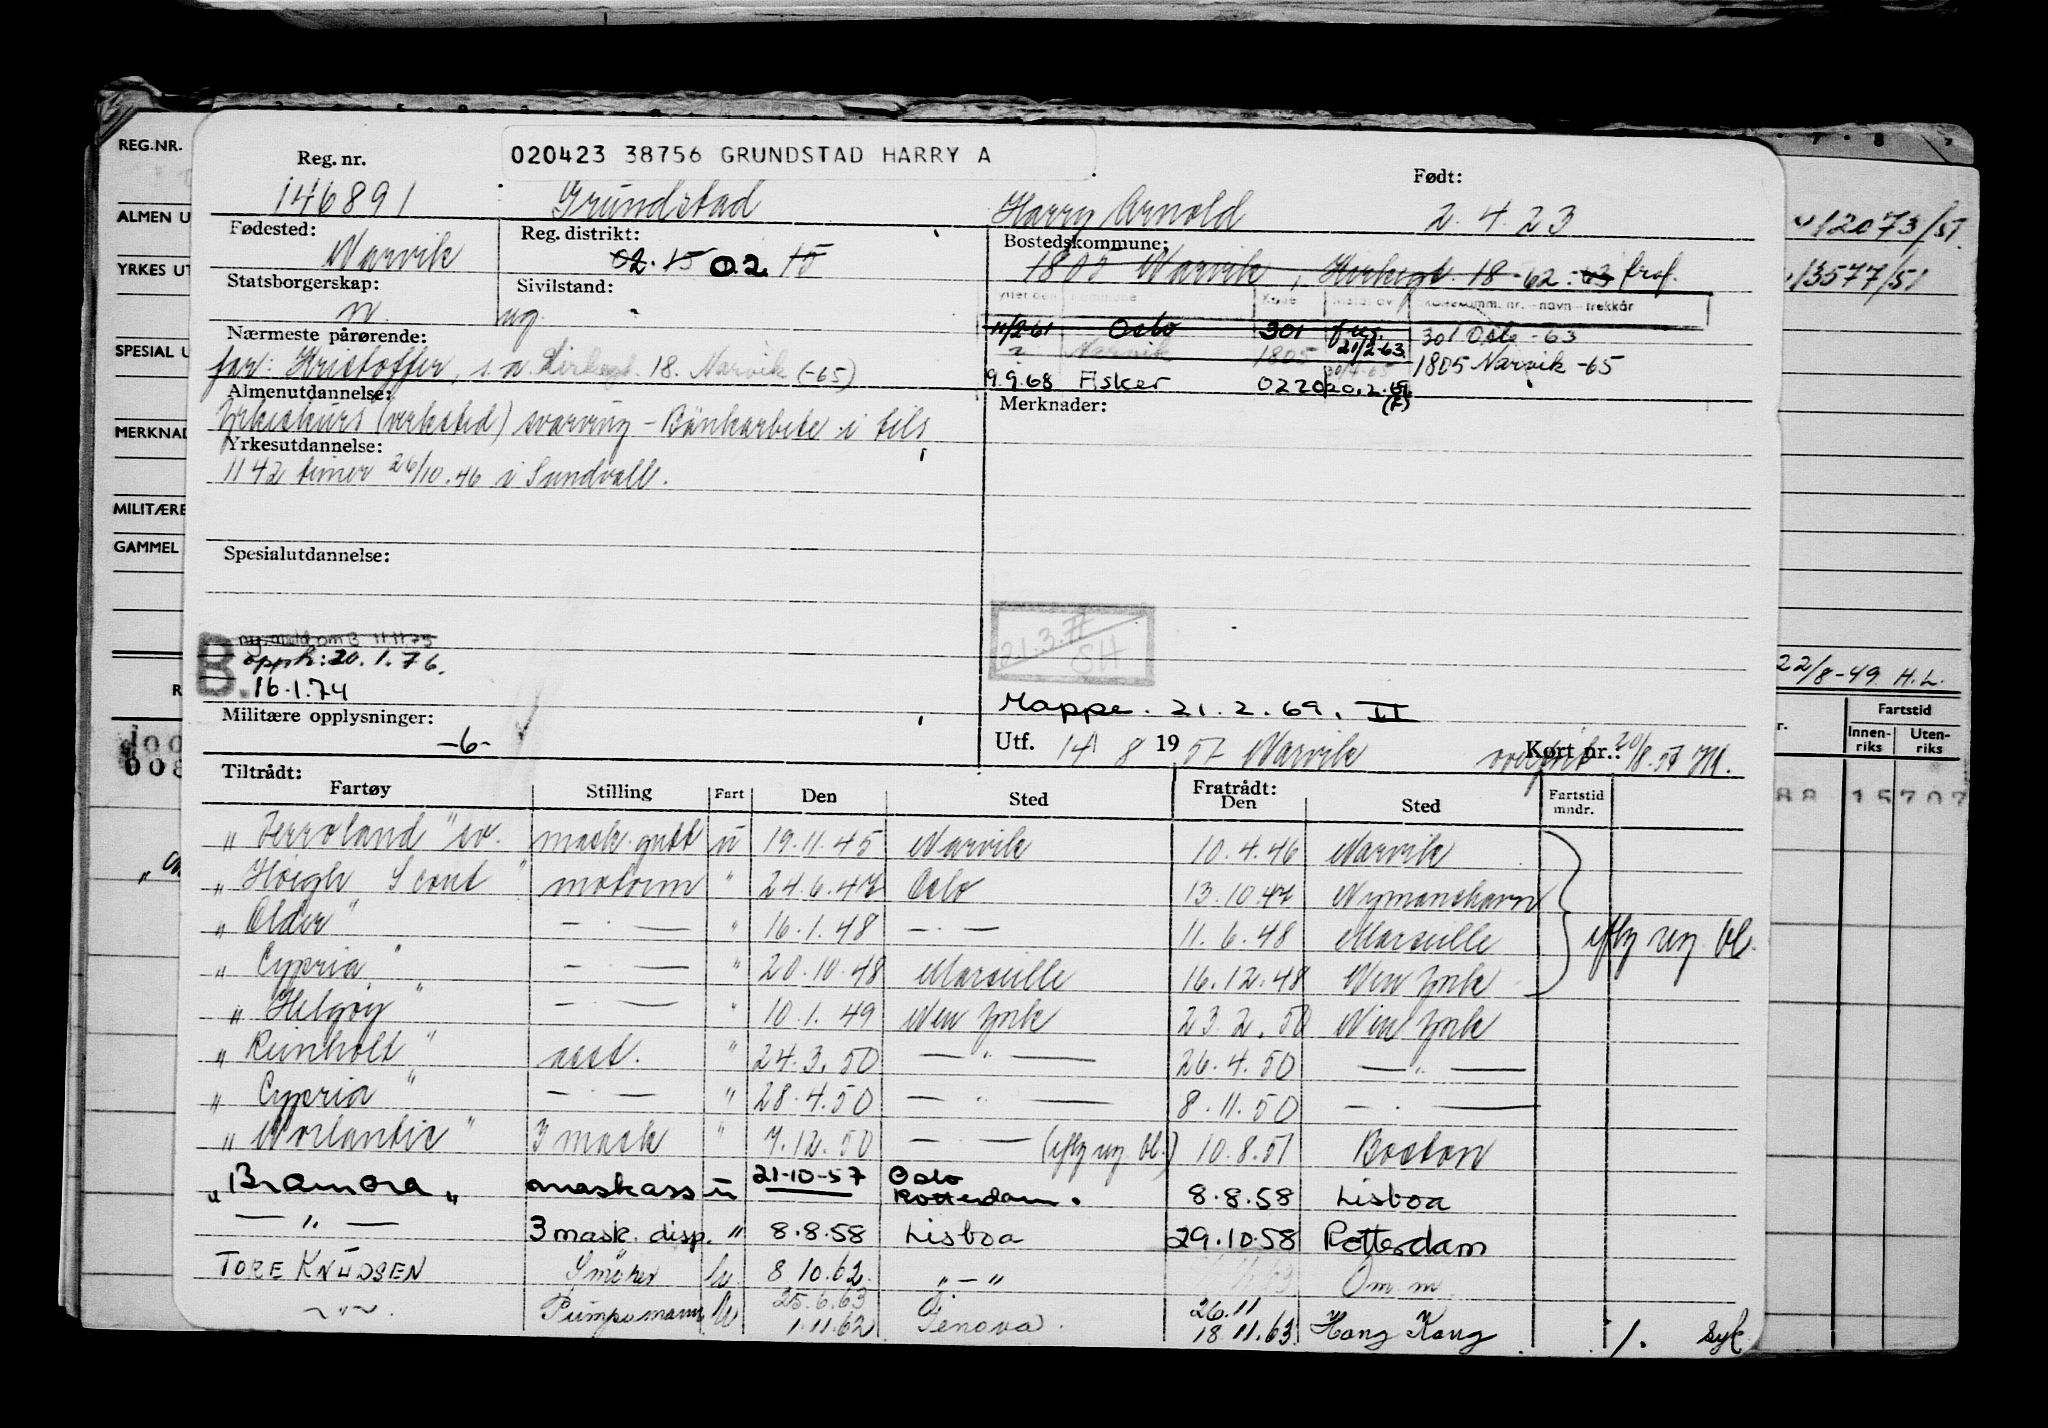 REG.NR.
ALMEN U
YRKES UT
SPESIAL U
MERKNAD
MILITÆRE
GAMMEL
020423 38756 GRUNDSTAD HARRY A
Reg. nr.
Født:
146891 Grundstad Harry Arnold 2.4.23
Fødested: Reg. distrikt: Bostedskommune:
Narvik 02.15 02 10 Narvik, 18 -62
Statsborgerskap: Sivilstand:
n. ug.
11/2-61 Oslo 301 21/2-63. 301 Oslo -63
Nærmeste pårørende:
Narvik 1805 1805 Narvik -65
far: Kristoffer, s.a. 18. Narvik (-65)
9.9.68 Asker 0220
Almenutdannelse: Merknader:
(verksted) - i
Yrkesutdannelse:
1142 timer 26/10.46 i Sundvall.
Spesialutdannelse:
21.3.77
SH
ny. meld om B 11 11 75
opph: 20.1.76.
B. 16.1.74
Mappe. 21.2.69. II
Militære opplysninger:
-6-
Utf. 14 8 1957 Narvik Kort nr.: 20/8.57
Tiltrådt: Fratrådt:
Fartøy Stilling Fart Den Sted Den Sted Fartstid mndr.
"Ferroland" sv. mask.gutt u 19.11.45 Narvik 10.4.46 Narvik
"Høigh Scout" motorm " 24.6.47 Oslo 13.10.47 Nynäshamn
"Older" - . - " 16.1.48 - . - 11.6.48 Marseille
iflg reg. bl.
"Cypria" - . - " 20.10.48 Marseille 16.12.48 New York
"Helgøy" - . - " 10.1.49 New York 23.2.50 New York
"Reinholt" asst. " 24.3.50 - " - 26.4.50 - " -
"Cypria" - . - " 28.4.50 - " - 8.11.50 - . -
"Norlantic" 3 mask " 7.12.50 - . - (iflg reg. bl.) 10.8.51 Boston
"Bramora" maskass u 21-10-57 Oslo Rotterdam. 8.8.58 Lisboa
- " - 3 mask. disp. " 8.8.58 Lisboa 29.10.58 Rotterdam
TORE KNUDSEN Smører u 8 10.62. " - " Om. m.
~ " ~ Pumpemann u 25.6.63 1.11.62 Genova 26.11 18.11.63 Hong Kong 1. syk
12073/51.
13577/51
22/8-49 H.L.
Fartstid
Innen-
riks
Uten-
riks
88 15707